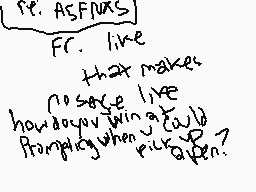 re. ASFNXS
Fr. like
that makes
no sense like
how do you win at
Prompting when u could
pick up
a pen?